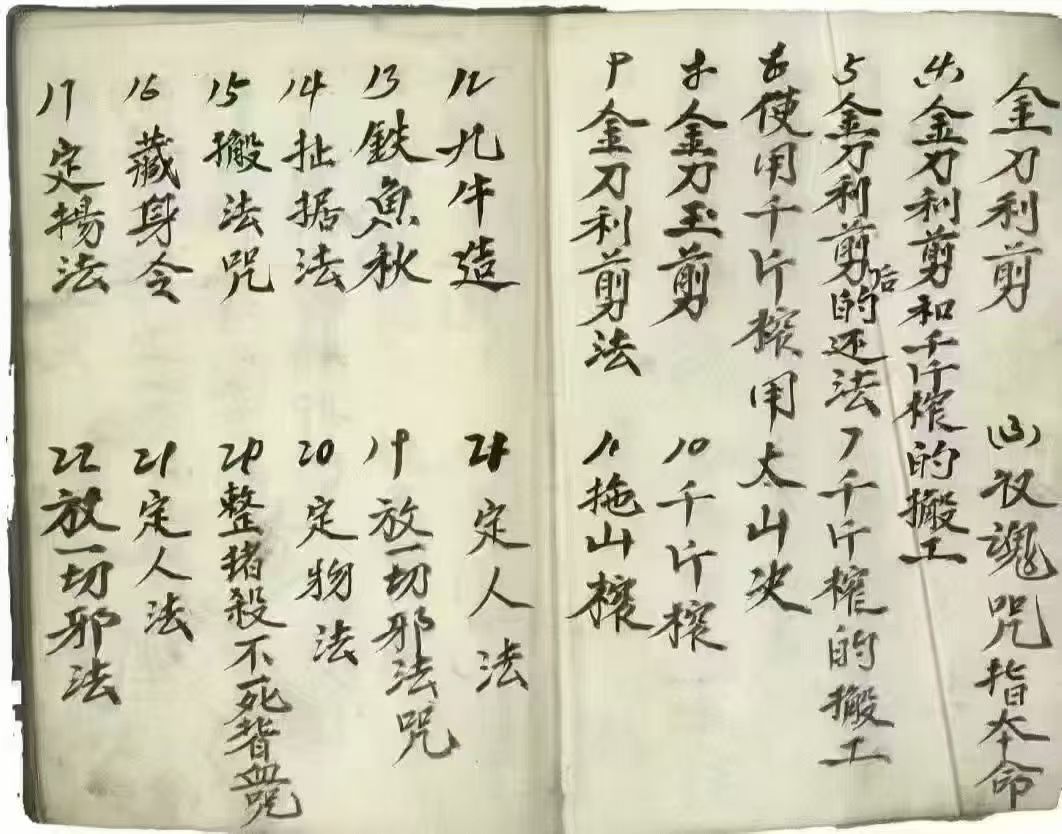 金刀利剪
(3)収魂咒指本命
(4)金刀利剪和千斤榨的搬工
5金刀利剪后的还法
7千斤榨的搬工
6使用千斤榨用太山决
8金刀玉剪
10千斤榨
9金刀利剪法
11拖山榨
12九牛造
21定人法
13鉄魚秋
19放一切邪法咒
14扯据法
20定物法
15搬法咒
整猪殺不死
咒
16藏身令
21定人法
17定楊法
22放一切邪法